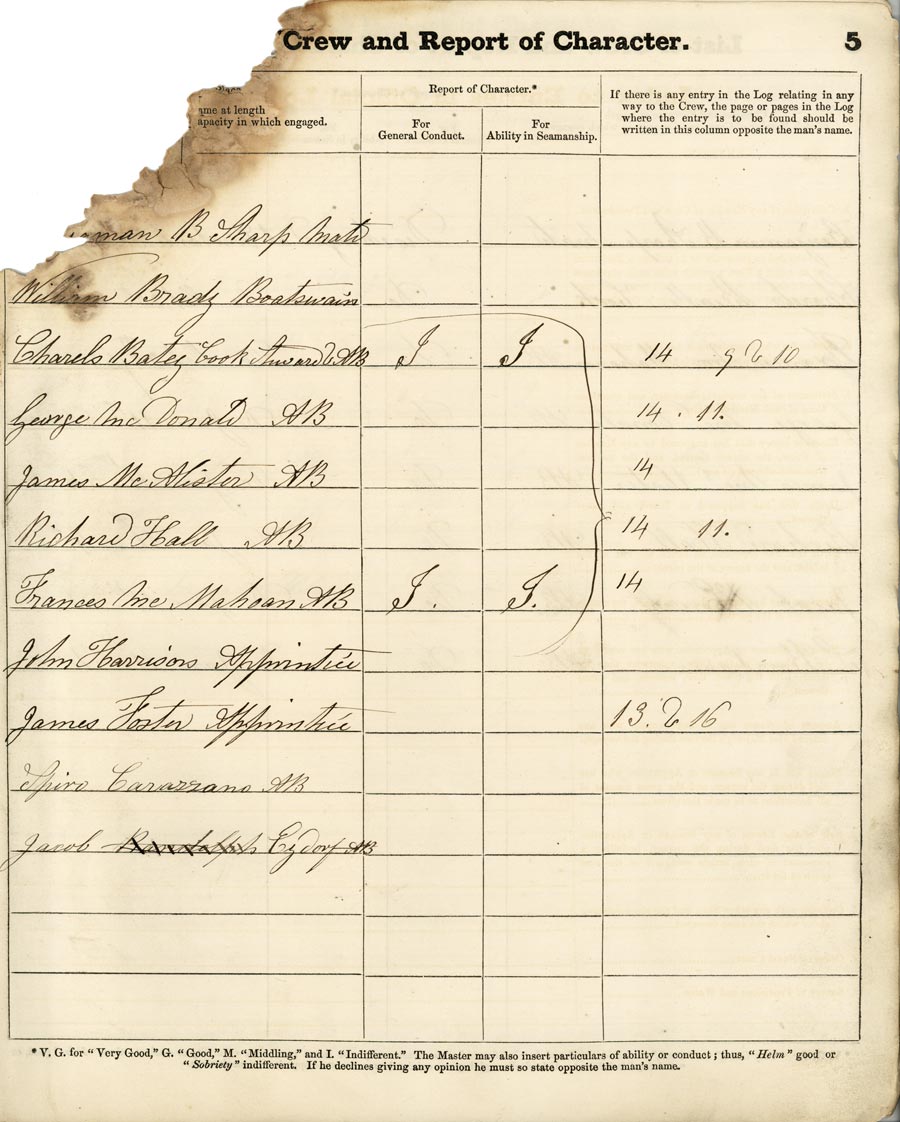 Crew and Report of Character.
5
me at length
apacity in which engaged.
Report of Character.*
For
General Conduct.
For
Ability in Seamanship.
If there is any entry in the Log relating in any
way to the Crew, the page or pages in the Log
where the entry is to be found should be
written in this column opposite the man's name.
man B Sharp Mate
William Brady Boatswain
Charels Batey Cook Steward & AB I I 14 9 & 10
George Mc Donald AB 14. 11.
James Mc Alister AB 14
Richard Hall AB 14 11.
Frances Mc Mahoan AB I. I. 14
John Harrison Apprintice
James Foster Apprintice 13. & 16
Spiro Carazzano AB
Jacob Ezdorf AB
* V. G. for "Very Good," G. "Good," M. "Middling," and I. "Indifferent." The Master may also insert particulars of ability or conduct; thus, "Helm" good or
"Sobriety" indifferent. If he declines giving any opinion he must so state opposite the man's name.